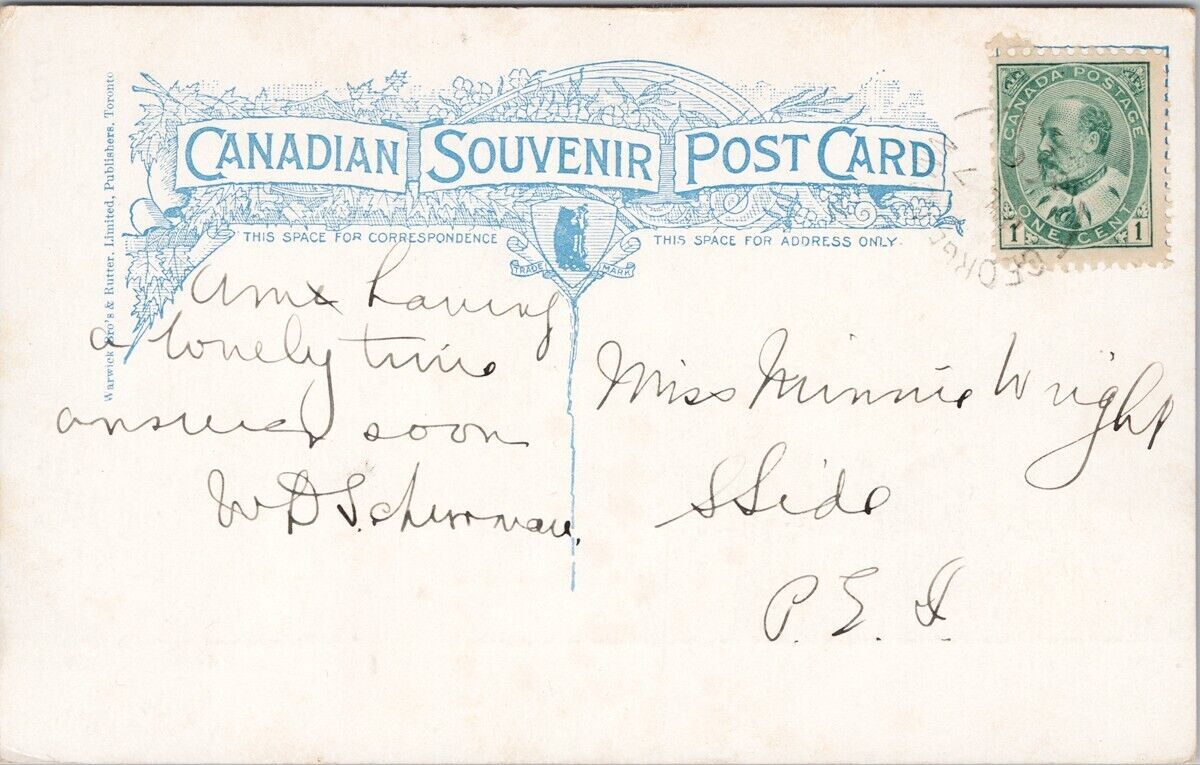 CANADIAN SOUVENIR POST CARD
THIS SPACE FOR CORRESPONDENCE
THIS SPACE FOR ADDRESS ONLY.
TRADE MARK
Warwick Bro's & Rutter, Limited, Publishers, Toronto
CANADA POSTAGE
1 ONE CENT 1
GEORG
am having
a lonely time
answer soon
W D Schurman.
Miss Minnie Wright
SSide
P. E. I.